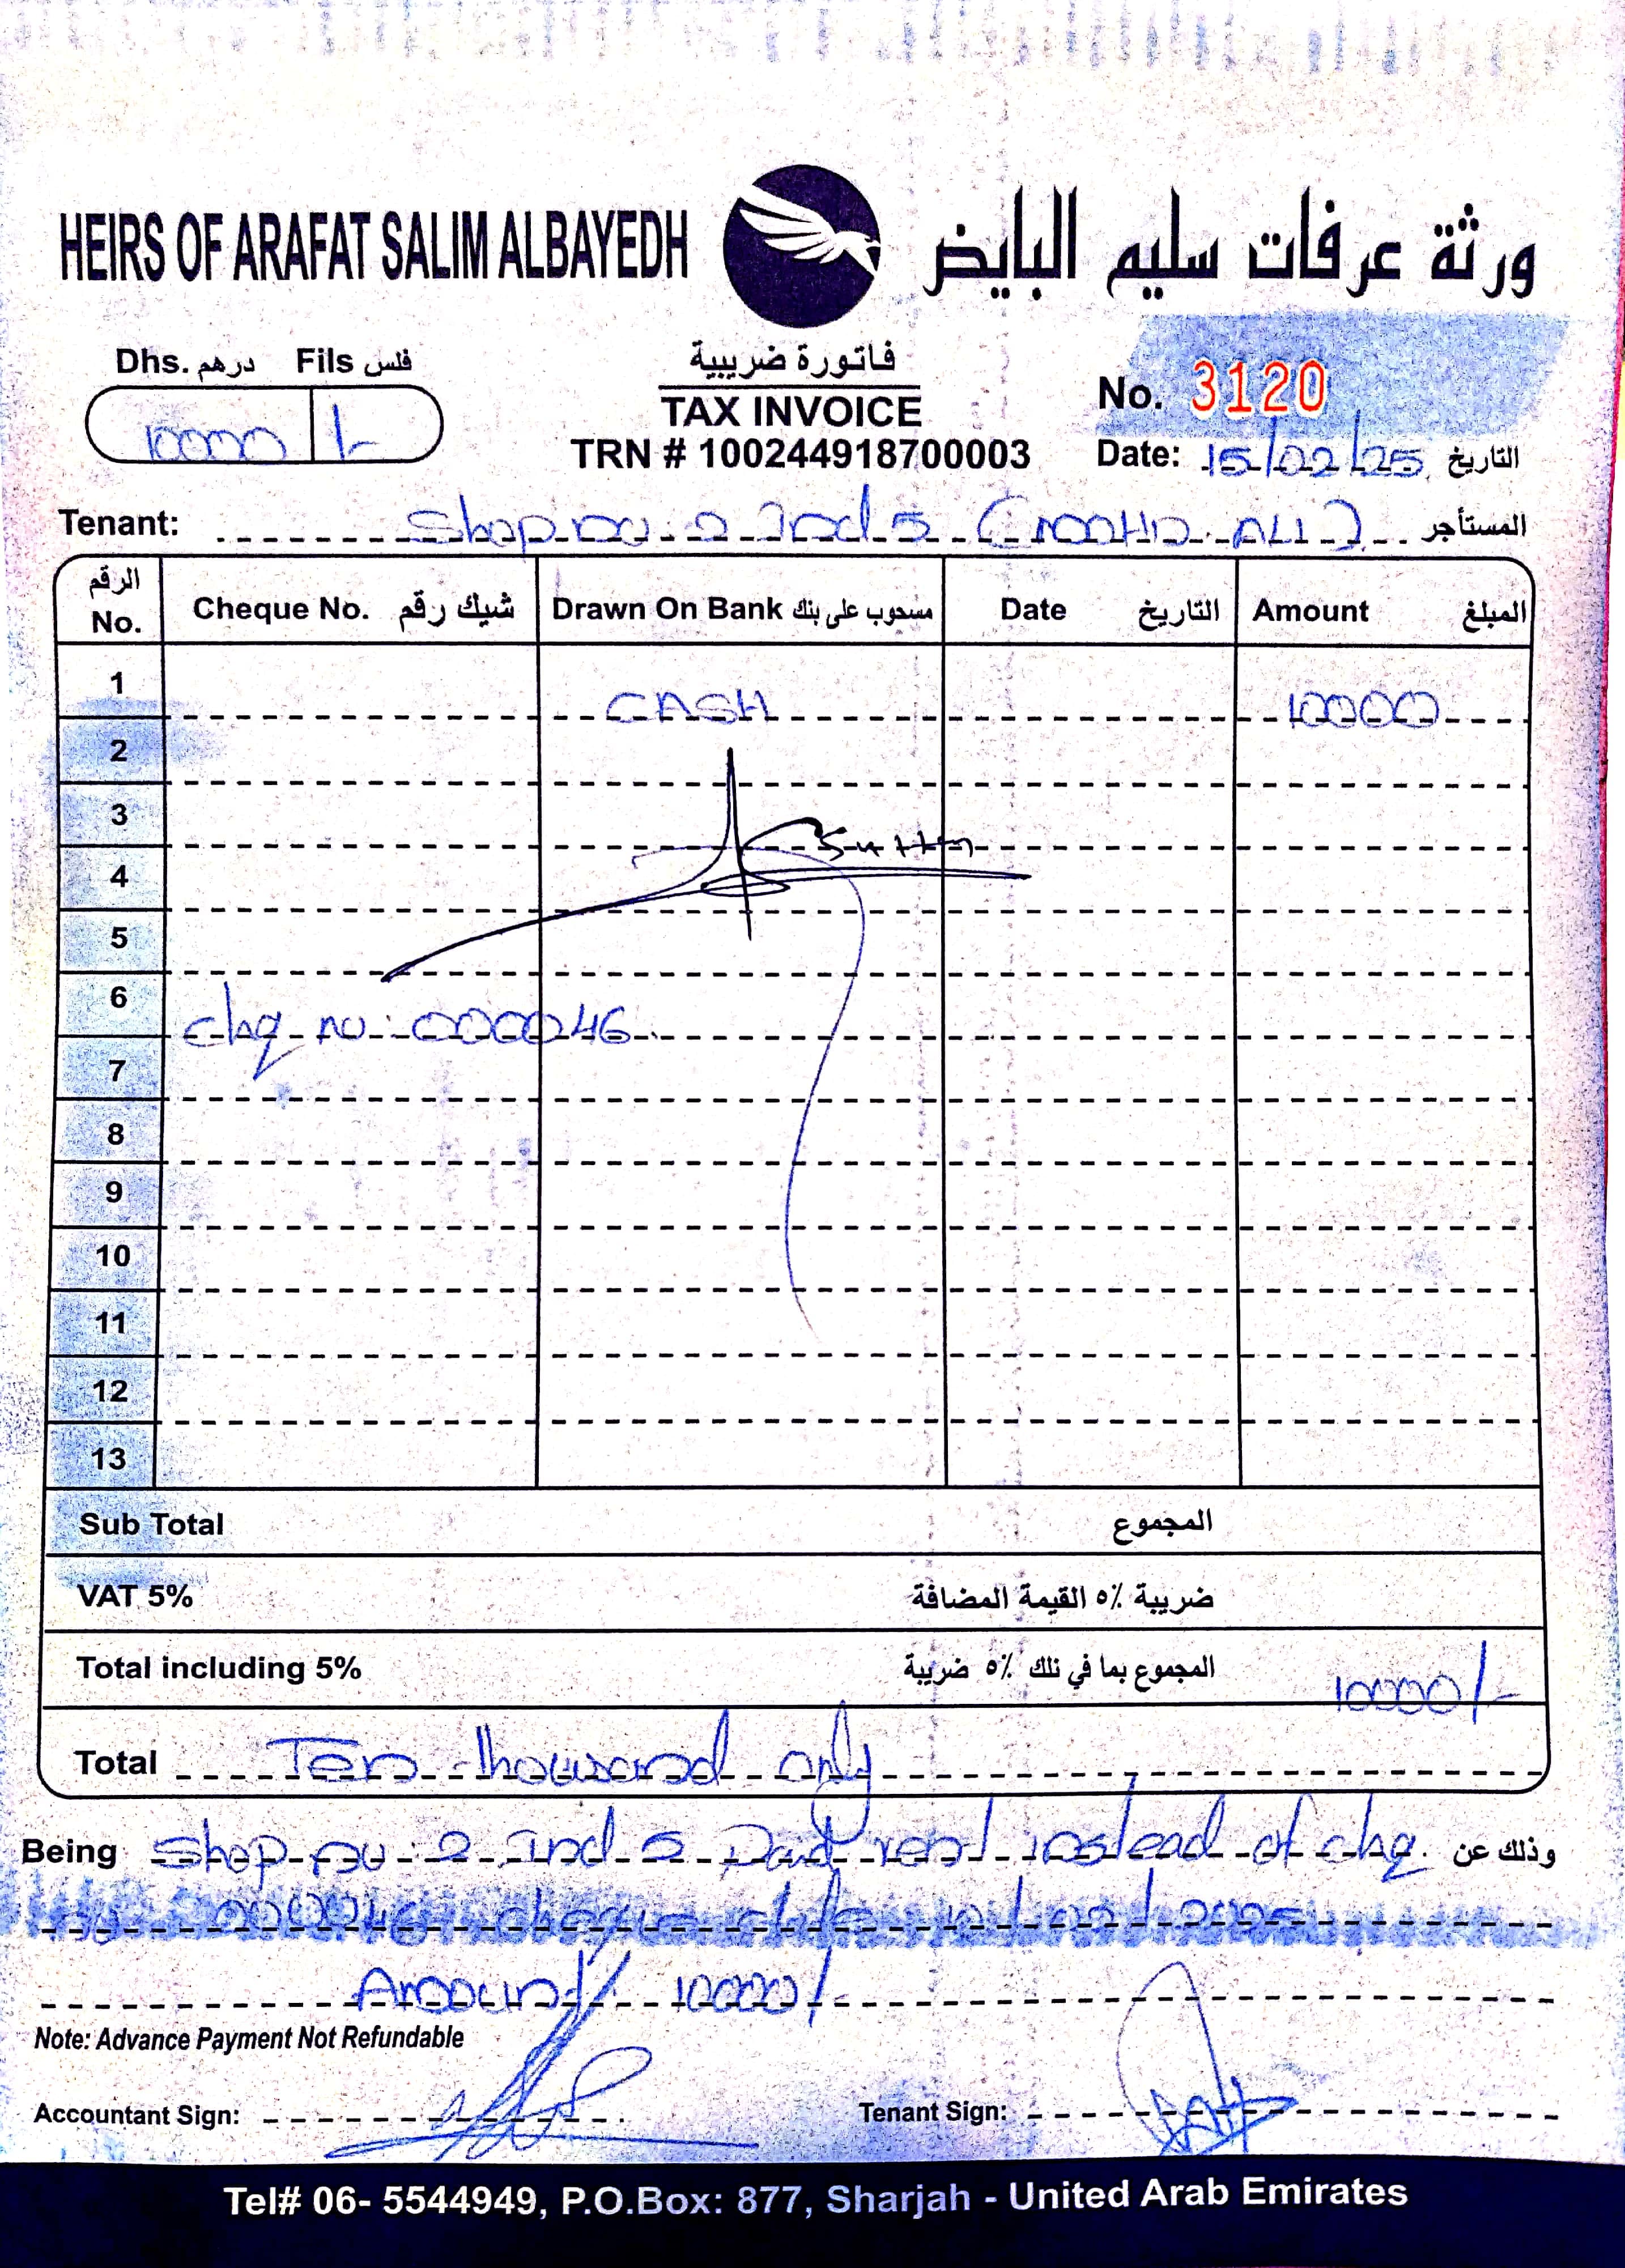 HEIRS OF ARAFAT SALIM ALBAYEDH ورثة عرفات سليم البايض
Dhs. درهم Fils فلس
10000 /-
فاتورة ضريبية
TAX INVOICE
TRN # 100244918700003
No. 3120
Date: 15/02/25 التاريخ
Tenant: Shop no: 2 Ind 5 (MOHD. ALI) المستأجر
الرقم No. Cheque No. شيك رقم Drawn On Bank مسحوب على بنك Date التاريخ Amount المبلغ
1 CASH 10000
2
3
4
5
6 chq no: 000046
7
8
9
10
11
12
13
Sub Total المجموع
VAT 5% ضريبة ٥٪ القيمة المضافة
Total including 5% المجموع بما في ذلك ٥٪ ضريبة 10000/-
Total Ten thousand only
Being Shop no: 2 Ind 5 Paid rent instead of chq. وذلك عن
000046 cheque date 10/02/2025
Amount 10000/-
Note: Advance Payment Not Refundable
Accountant Sign: Tenant Sign:
Tel# 06- 5544949, P.O.Box: 877, Sharjah - United Arab Emirates